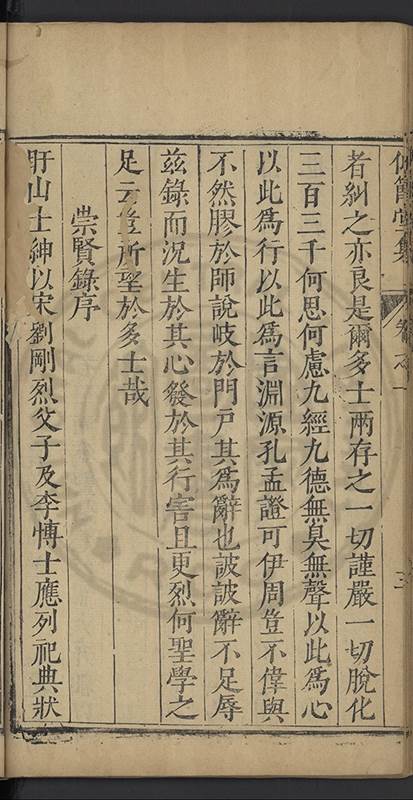 者糾之亦良是爾多士兩存之一切謹嚴一切脫化
三百三千何思何慮九經九德無臭無聲以此為心
以此為行以此為言淵源孔孟證可伊周豈不偉與
不然膠於師說岐於門戶其為辭也詖詖辭不足辱
茲錄而況生於其心發於其行害且更烈何聖學之
足云豈所望於多士哉
崇賢錄序
盱山士紳以宋劉剛烈父子及李博士應列祀典狀